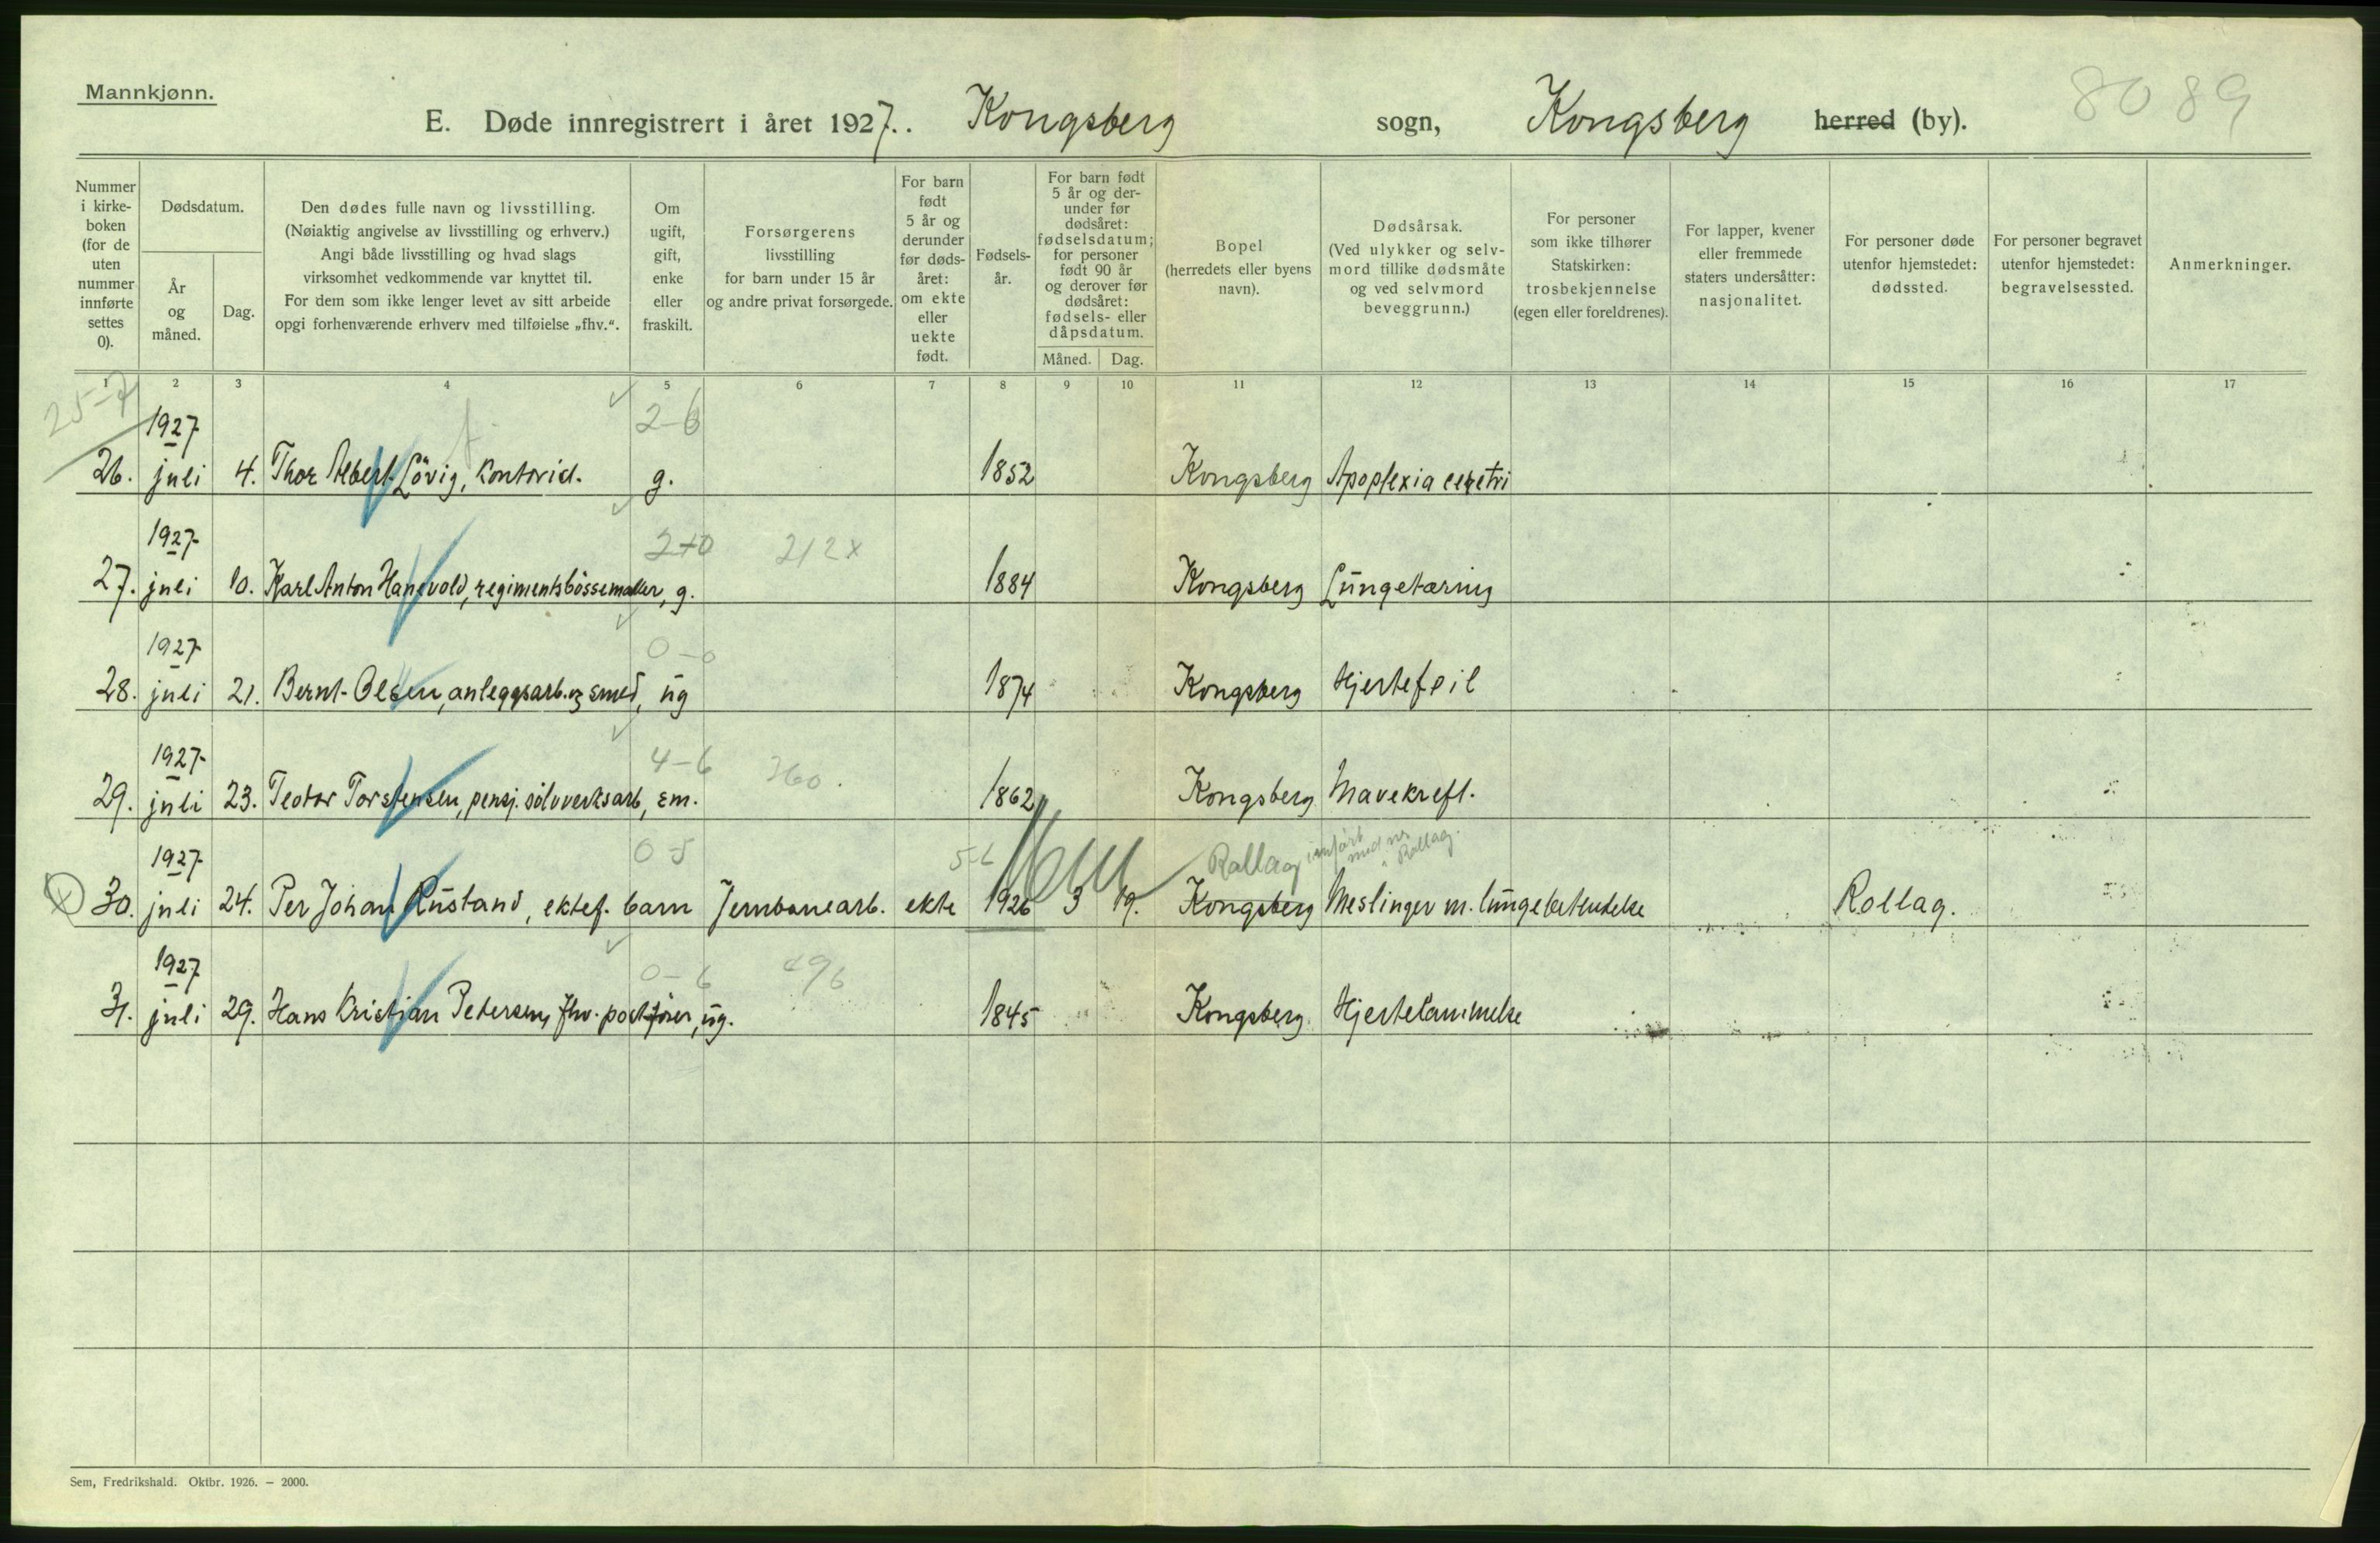 Mannkjønn.
8089
E. Døde innregistrert i året 1927. Kongsberg sogn, Kongsberg herred (by).
Nummer i kirke-boken (for de uten nummer innførte settes 0).
Dødsdatum.
År og måned.
Dag.
Den dødes fulle navn og livsstilling.
(Nøiaktig angivelse av livsstilling og erhverv.)
Angi både livsstilling og hvad slags
virksomhet vedkommende var knyttet til.
For dem som ikke lenger levet av sitt arbeide
opgi forhenværende erhverv med tilføielse „fhv.“.
Om ugift, gift, enke eller fraskilt.
Forsørgerens
livsstilling
for barn under 15 år
og andre privat forsørgede.
For barn født 5 år og derunder før døds-året: om ekte eller uekte født.
Fødsels-år.
For barn født 5 år og der-under før dødsåret: fødselsdatum; for personer født 90 år og derover før dødsåret: fødsels- eller dåpsdatum.
Måned.
Dag.
Bopel
(herredets eller byens navn).
Dødsårsak.
(Ved ulykker og selv-mord tillike dødsmåte og ved selvmord beveggrunn.)
For personer som ikke tilhører Statskirken: trosbekjennelse (egen eller foreldrenes).
For lapper, kvener eller fremmede staters undersåtter: nasjonalitet.
For personer døde utenfor hjemstedet: dødssted.
For personer begravet utenfor hjemstedet: begravelsessted.
Anmerkninger.
1 2 3 4 5 6 7 8 9 10 11 12 13 14 15 16 17
25-7
1927 2-6
26. juli 4. Thor Albert Lövig, Kontorid. g. 1852 Kongsberg Apoplexia
1927 2+0 212x
27. juli 10. Karl Anton Hansvold, regimentsbössemaker, g. 1884 Kongsberg Lungetæring
1927 0-0
28. juli 21. Bernt Olsen, anleggsarb. og smed, ug 1874 Kongsberg Hjertefeil
1927 4-6 360.
29. juli 23. Teodor Torstensen, pensj. sölvverksarb, em. 1862 Kongsberg Mavekreft.
1927 0-5 Rollag innført med nr. i Rollag.
30. juli 24. Per Johan Rustand, ektef. barn Jernbanearb. ekte 1926 3 19. Kongsberg Meslinger m. lungebetendelse Rollag.
1927 0-6 496
31. juli 29. Hans Kristian Petersen, fhv. postförer, ug. 1845 Kongsberg Hjertelammelse
Sem, Fredrikshald. Oktbr. 1926. — 2000.